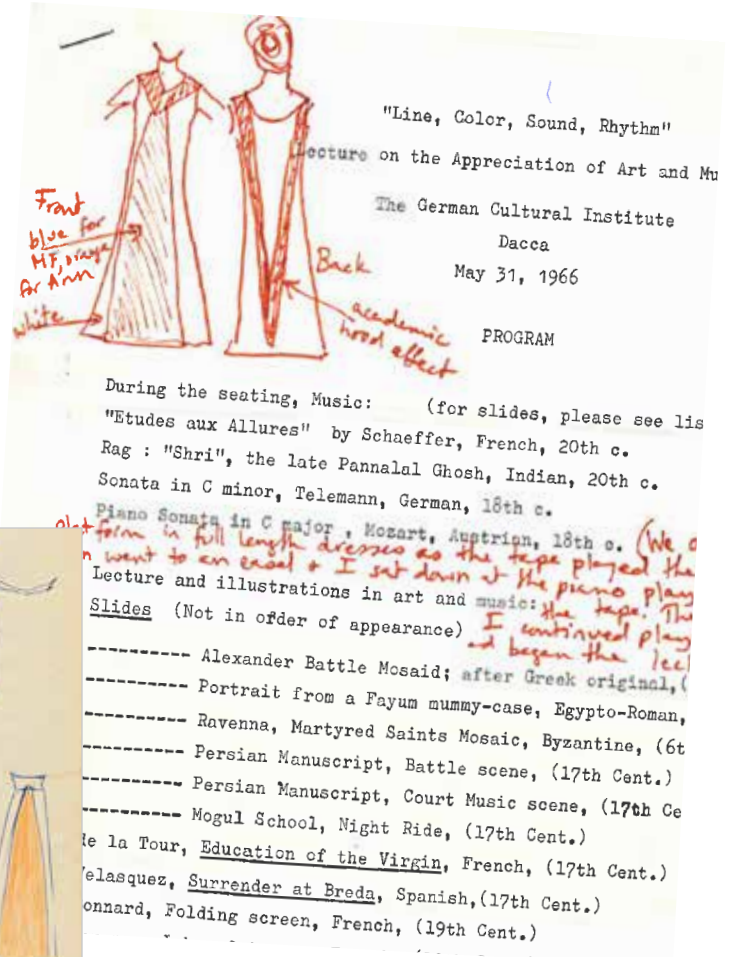 "Line, Color, Sound, Rhythm"
Lecture on the Appreciation of Art and Mu
The German Cultural Institute
Dacca
May 31, 1966
PROGRAM
Front
blue for
MF, orange
for Ann
white
Back
academic
hood effect
During the seating, Music: (for slides, please see lis
"Etudes aux Allures" by Schaeffer, French, 20th c.
Rag : "Shri", the late Pannalal Ghosh, Indian, 20th c.
Sonata in C minor, Telemann, German, 18th c.
Piano Sonata in C major , Mozart, Austrian, 18th c. (We
form in full length dresses as the tape played the
went to an easel & I sat down at the piano play
Lecture and illustrations in art and music: the tape. The
Slides (Not in order of appearance) I continued play
began the lec
---------- Alexander Battle Mosaid; after Greek original,(
---------- Portrait from a Fayum mummy-case, Egypto-Roman,
---------- Ravenna, Martyred Saints Mosaic, Byzantine, (6t
---------- Persian Manuscript, Battle scene, (17th Cent.)
---------- Persian Manuscript, Court Music scene, (17th Ce
---------- Mogul School, Night Ride, (17th Cent.)
de la Tour, Education of the Virgin, French, (17th Cent.)
Velasquez, Surrender at Breda, Spanish,(17th Cent.)
onnard, Folding screen, French, (19th Cent.)